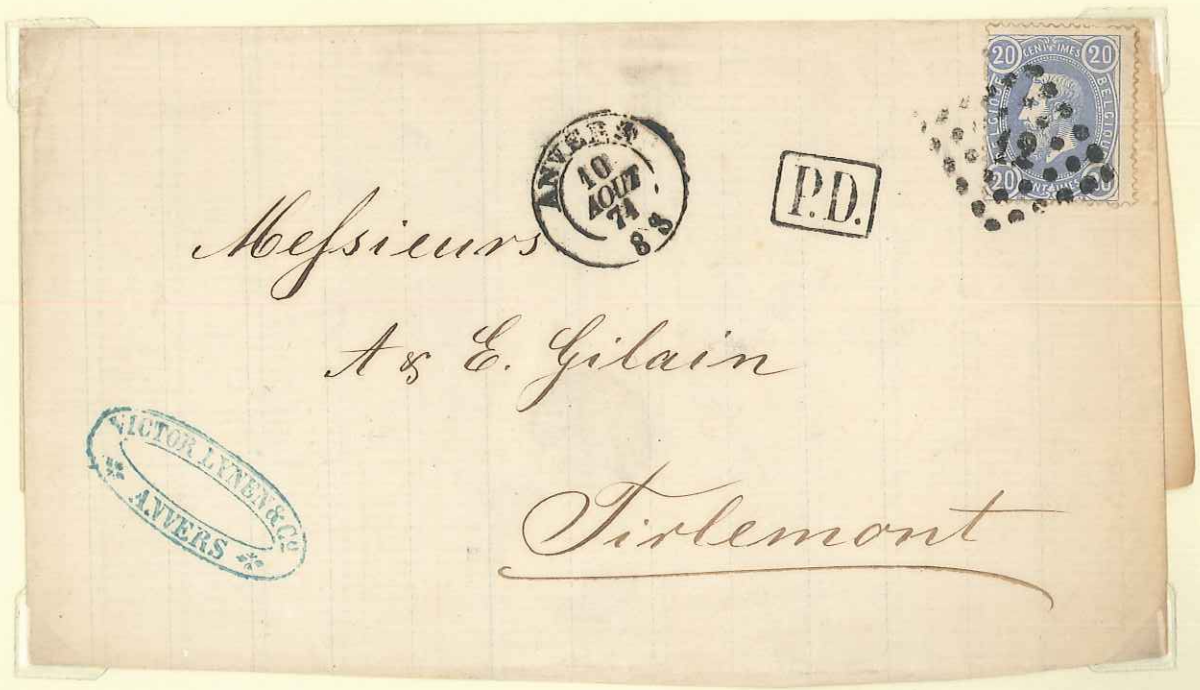 20 CENTIMES 20
BELGIQUE BELGIQUE
20 CENTIMES 20
ANVERS
10
AOUT
71
8 S
P.D.
Messieurs
A & E. Gilain
Tirlemont
VICTOR LYNEN & Cº
ANVERS